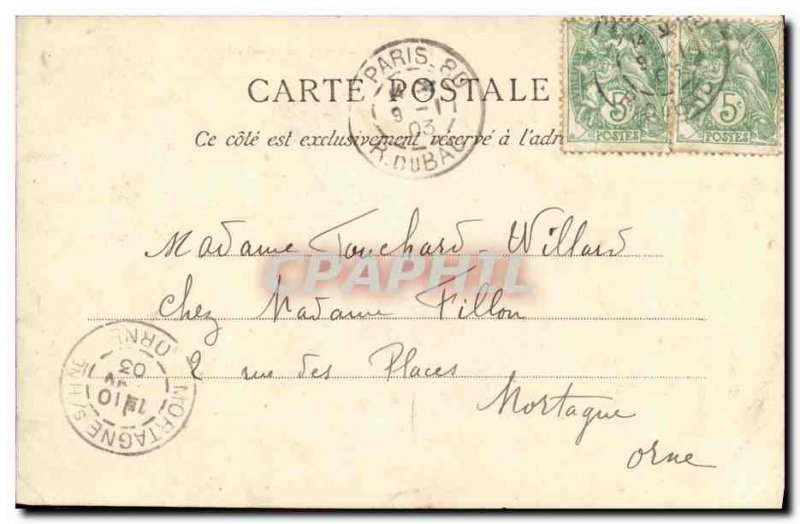 CARTE POSTALE
Ce côté est exclusivement réservé à l'adr
PARIS 80
9
03
R. DU BAC
5c 5c
POSTES POSTES
CPAPHIL
Madame Touchard-Willard
chez Madame Fillon
2 rue des Places
Mortagne
Orne
MORTAGNE S/ HNE
ORNE
10
03